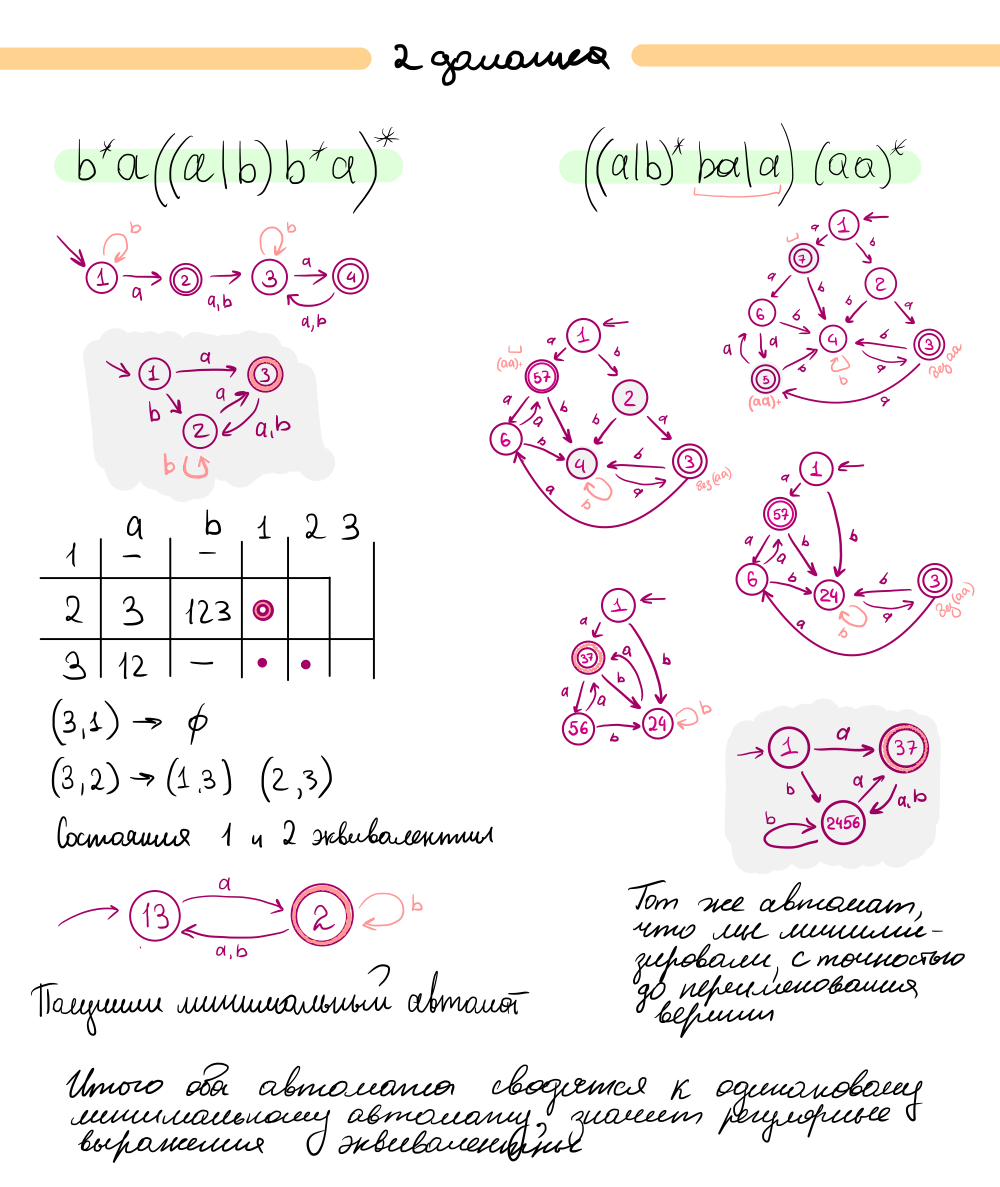 2 домашка
b*a((a|b)b*a)*
((a|b)*ba|a)(aa)*
b
b
1
a
2
a,b
3
a
4
a,b
1
a
3
b
a
2
a,b
b
a b 1 2 3
1 – –
2 3 123
3 12 –
(3,1) → ∅
(3,2) → (1,3) (2,3)
Состояния 1 и 2 эквивалентны
13
a
2
b
a,b
Получили минимальный автомат
1
a
b
7
2
a
b
b
a
6
b
4
b
3
a
a
b
a
без aa
b
5
(aa)+
a
1
a
b
(aa)+
57
2
a
a
b
b
a
6
b
4
b
3
a
без (aa)
b
a
1
a
57
b
a
a
b
6
b
24
b
3
a
без (aa)
b
a
1
a
37
a
b
b
a
a
56
b
24
b
1
a
37
b
a
a,b
b
2456
Тот же автомат,
что мы миними-
зировали, с точностью
до переименования
вершин
Итого оба автомата сводятся к одинаковому
минимальному автомату, значит регулярные
выражения эквивалентны